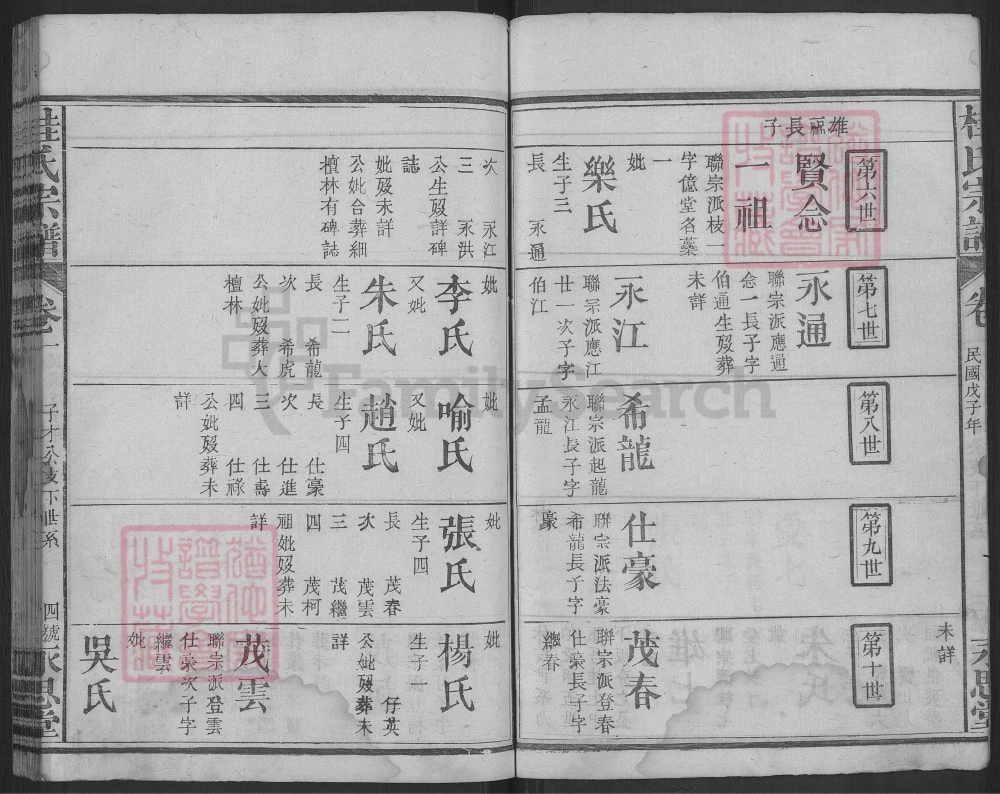 桂氏宗譜
卷一
民國戊子年
永思堂
第六世
雄福長子
賢念
一祖
聯宗派枝一
字億堂名藥
一
妣
樂氏
生子三
長 永通
次 永江
三 永洪
公生歿詳碑
誌
妣歿未詳
公妣合葬細
檀林有碑誌
第七世
永通
聯宗派應通
念一長子字
伯通生歿葬
未詳
永江
聯宗派應江
廿一次子字
伯江
妣
李氏
又妣
朱氏
生子二
長 希龍
次 希虎
公妣歿葬大
檀林
第八世
希龍
聯宗派起龍
永江長子字
孟龍
妣
喻氏
又妣
趙氏
生子四
長 仕豪
次 仕進
三 仕壽
四 仕祿
公妣歿葬未
詳
第九世
仕豪
聯宗派法豪
希龍長子字
豪
妣
張氏
生子四
長 茂春
次 茂雲
三 茂繼
四 茂柯
祖妣歿葬未
詳
第十世
未詳
茂春
聯宗派登春
仕榮長子字
繼春
妣
楊氏
生子一
仔英
公妣歿葬未
詳
茂雲
聯宗派登雲
仕榮次子字
繼雲
妣
吳氏
桂氏宗譜
卷一
子才公支下世系
四號
永思堂
FamilySearch